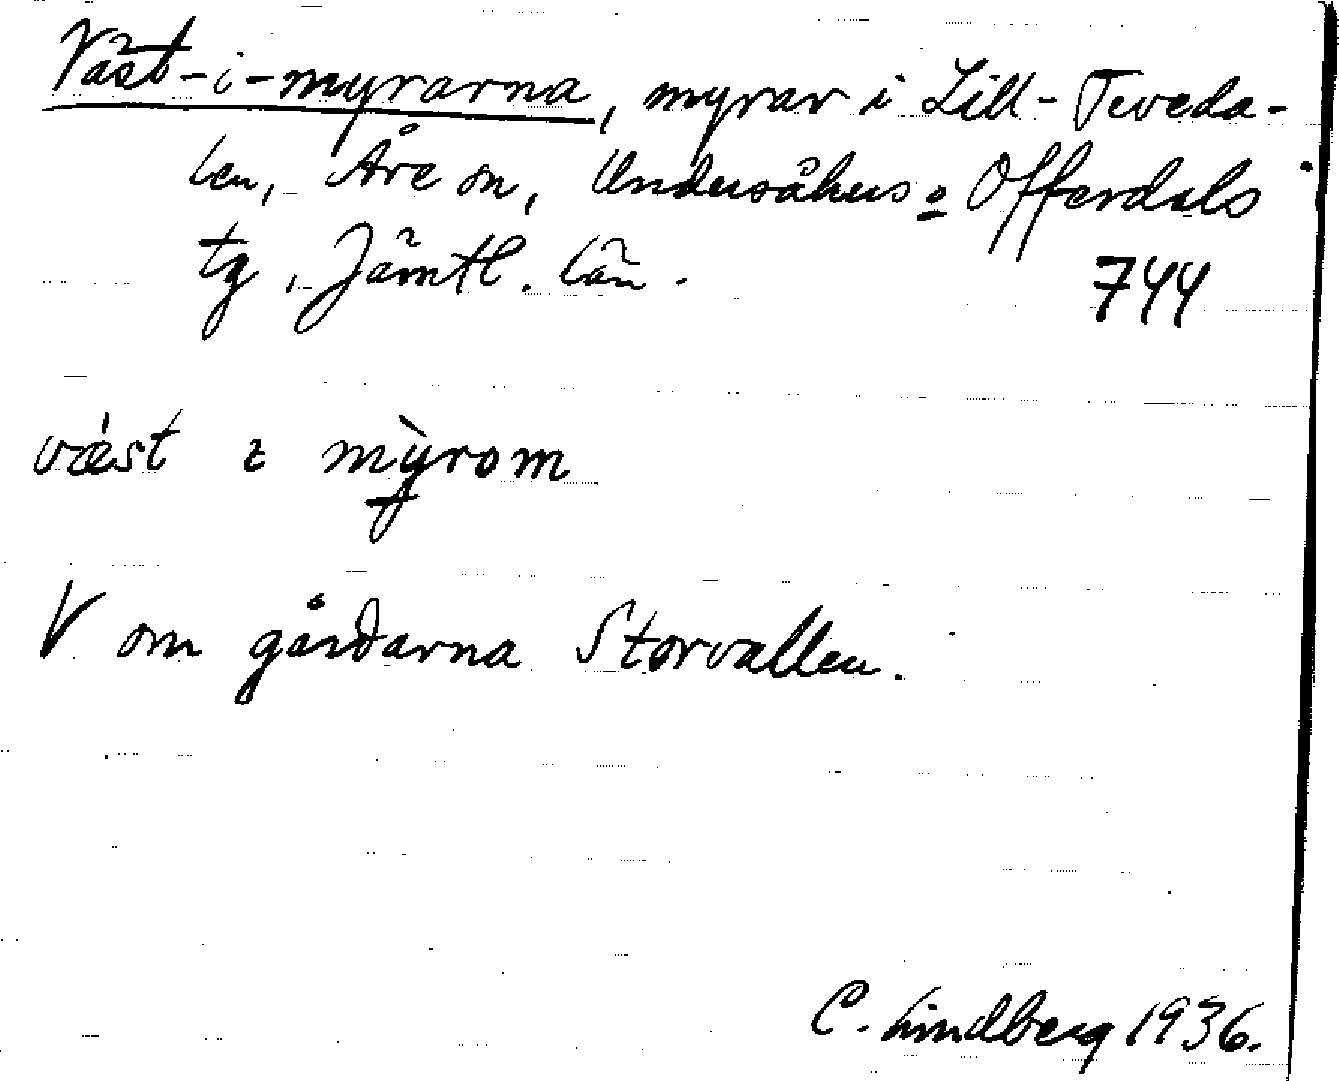 Väst-i-myrarna, myrar i Lill-Teveda-
len, Åre sn, Undersåkers o Offerdals
tg, Jämtl. län.
744
væ̀st ɩ mỳrom
V om gårdarna Storvallen.
C. Lindberg 1936.